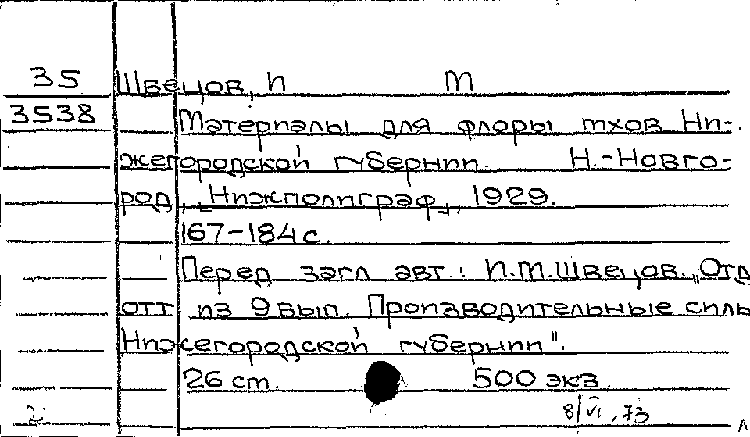 35 Швецов, П М
3538 Материалы для флоры мхов Ни-
жегородской губернии. Н.-Новго-
род, „Нижполиграф", 1929.
167-184 с.
Перед загл авт.: П.М.Швецов. „Отд
отт из 9 вып. Производительные силы
Нижегородской губернии".
26 см. 500 экз.
8/VI.73